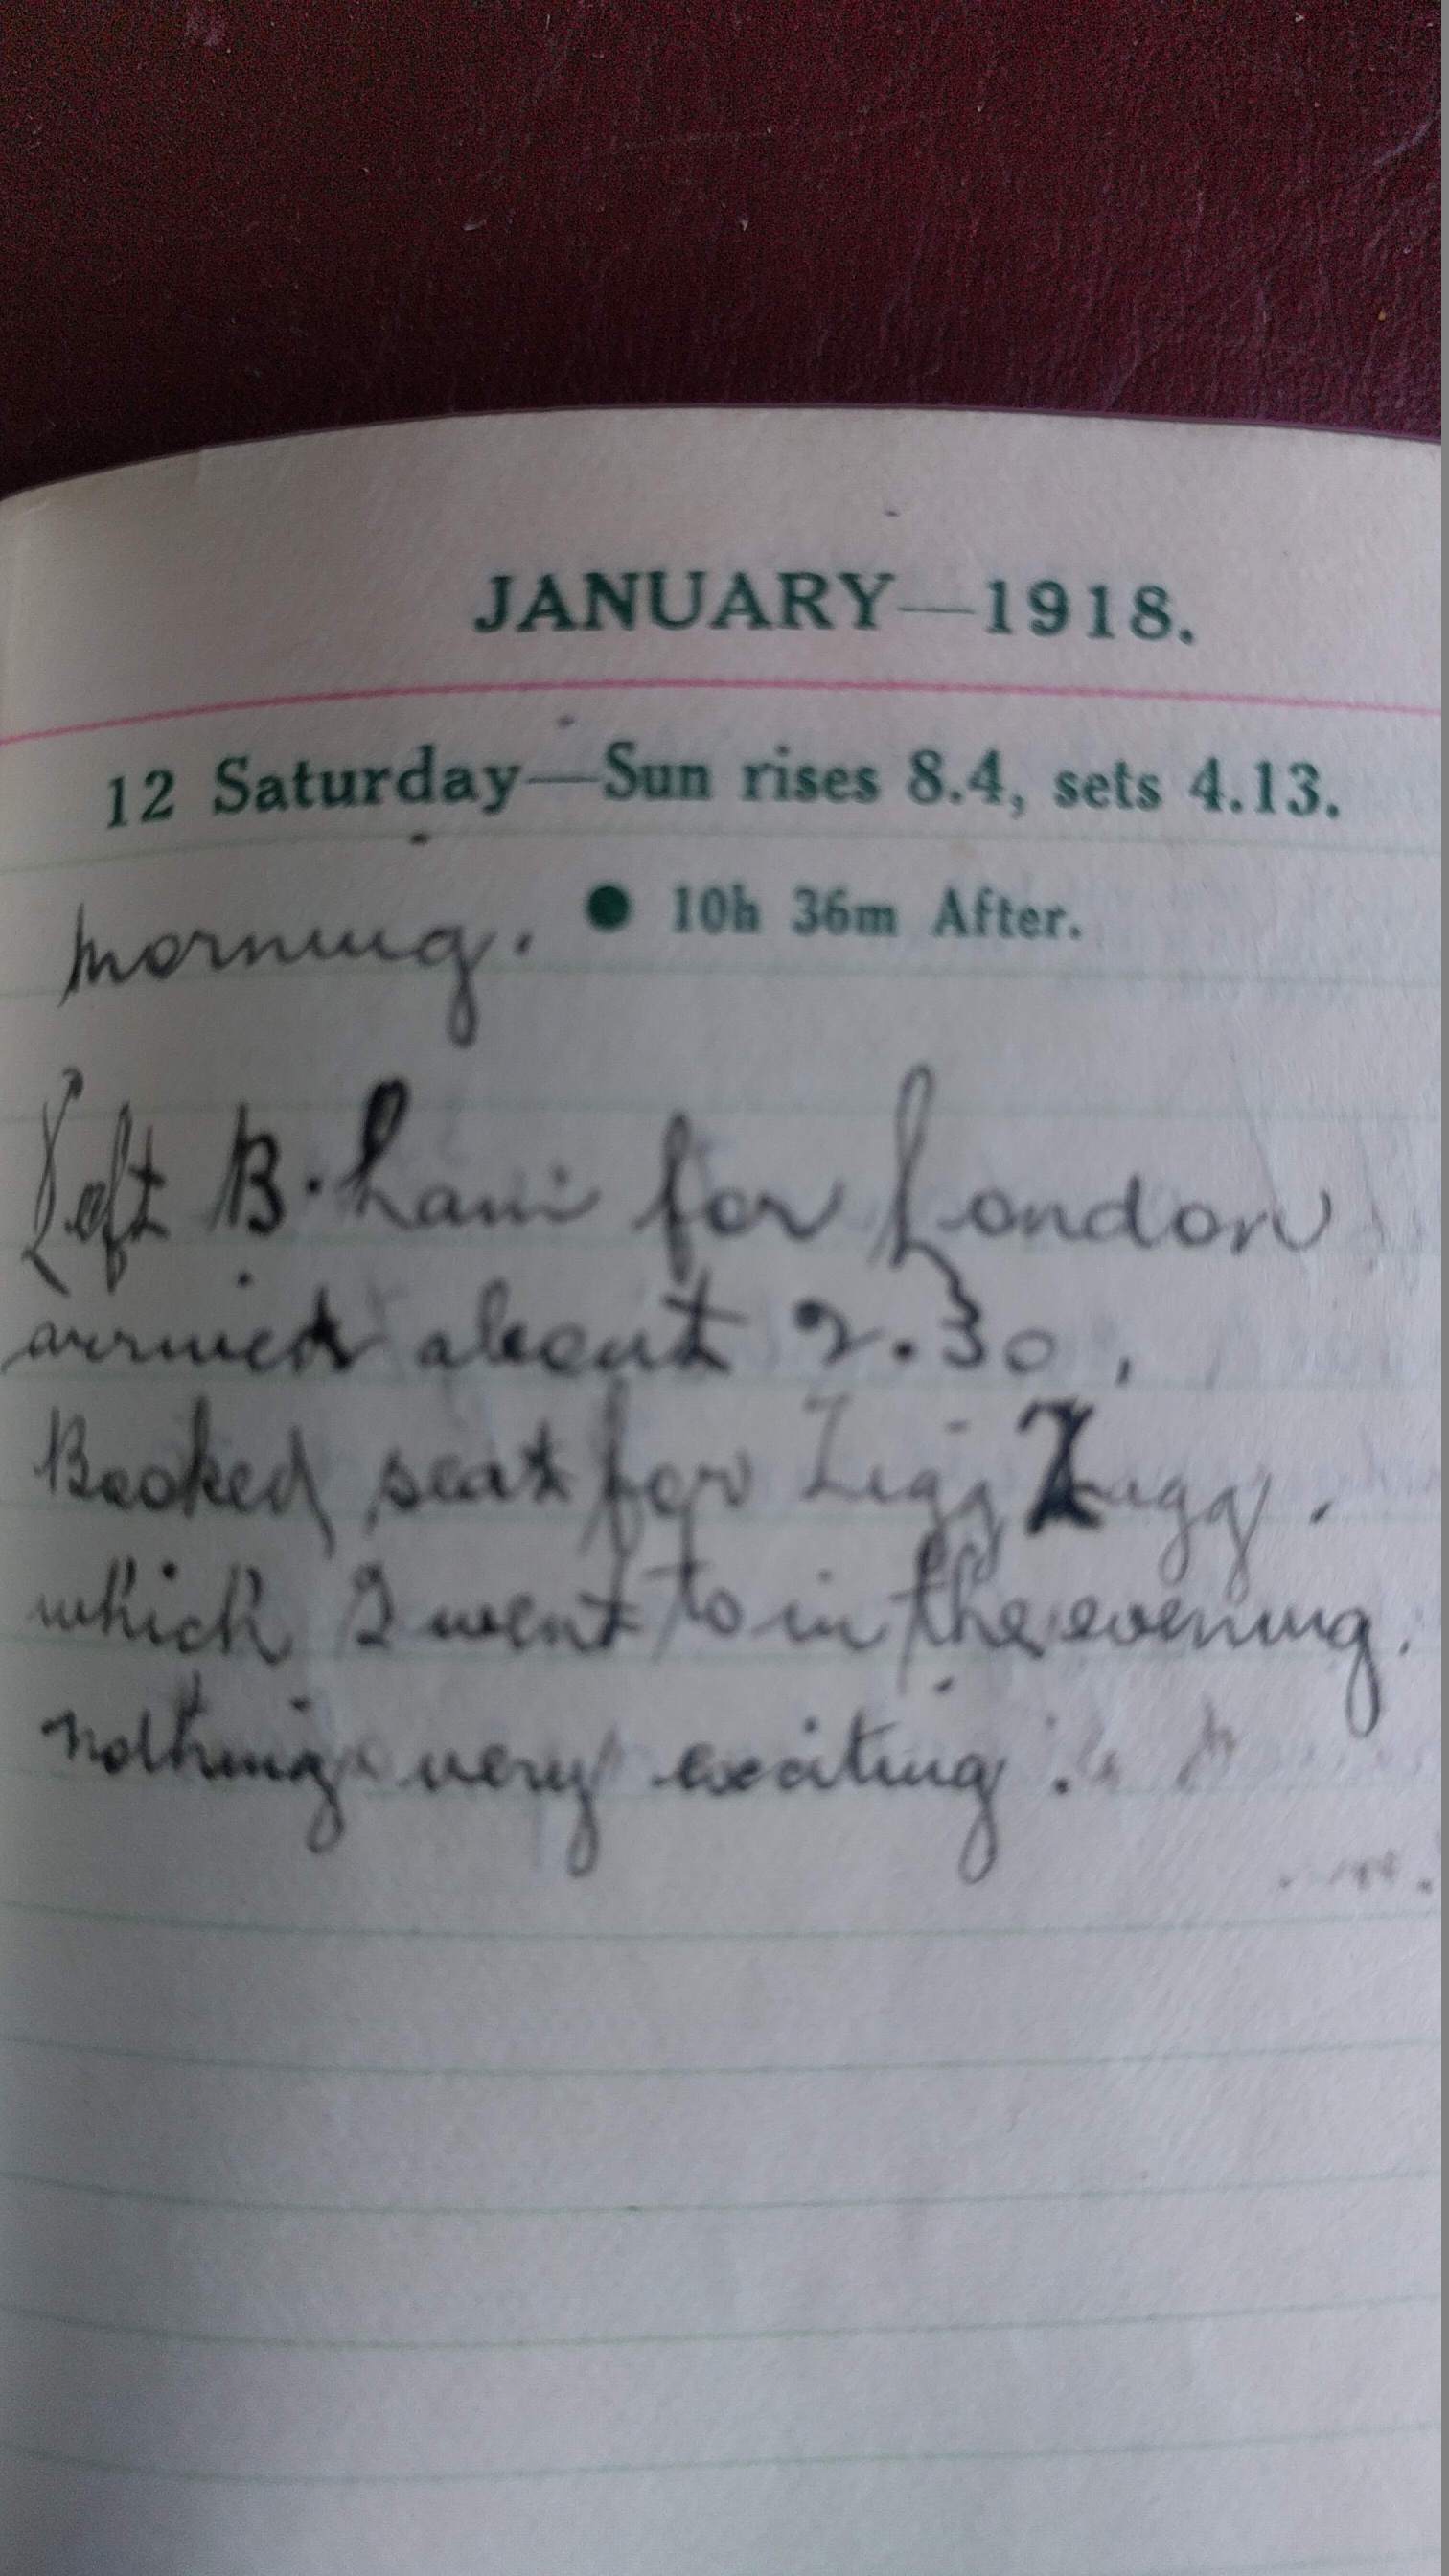 JANUARY—1918.
12 Saturday—Sun rises 8.4, sets 4.13.
● 10h 36m After.
morning.
Left B.ham for London
arrived about 2.30,
Booked seat for Zigg Zagg.
which I went to in the evening.
nothing very exciting.